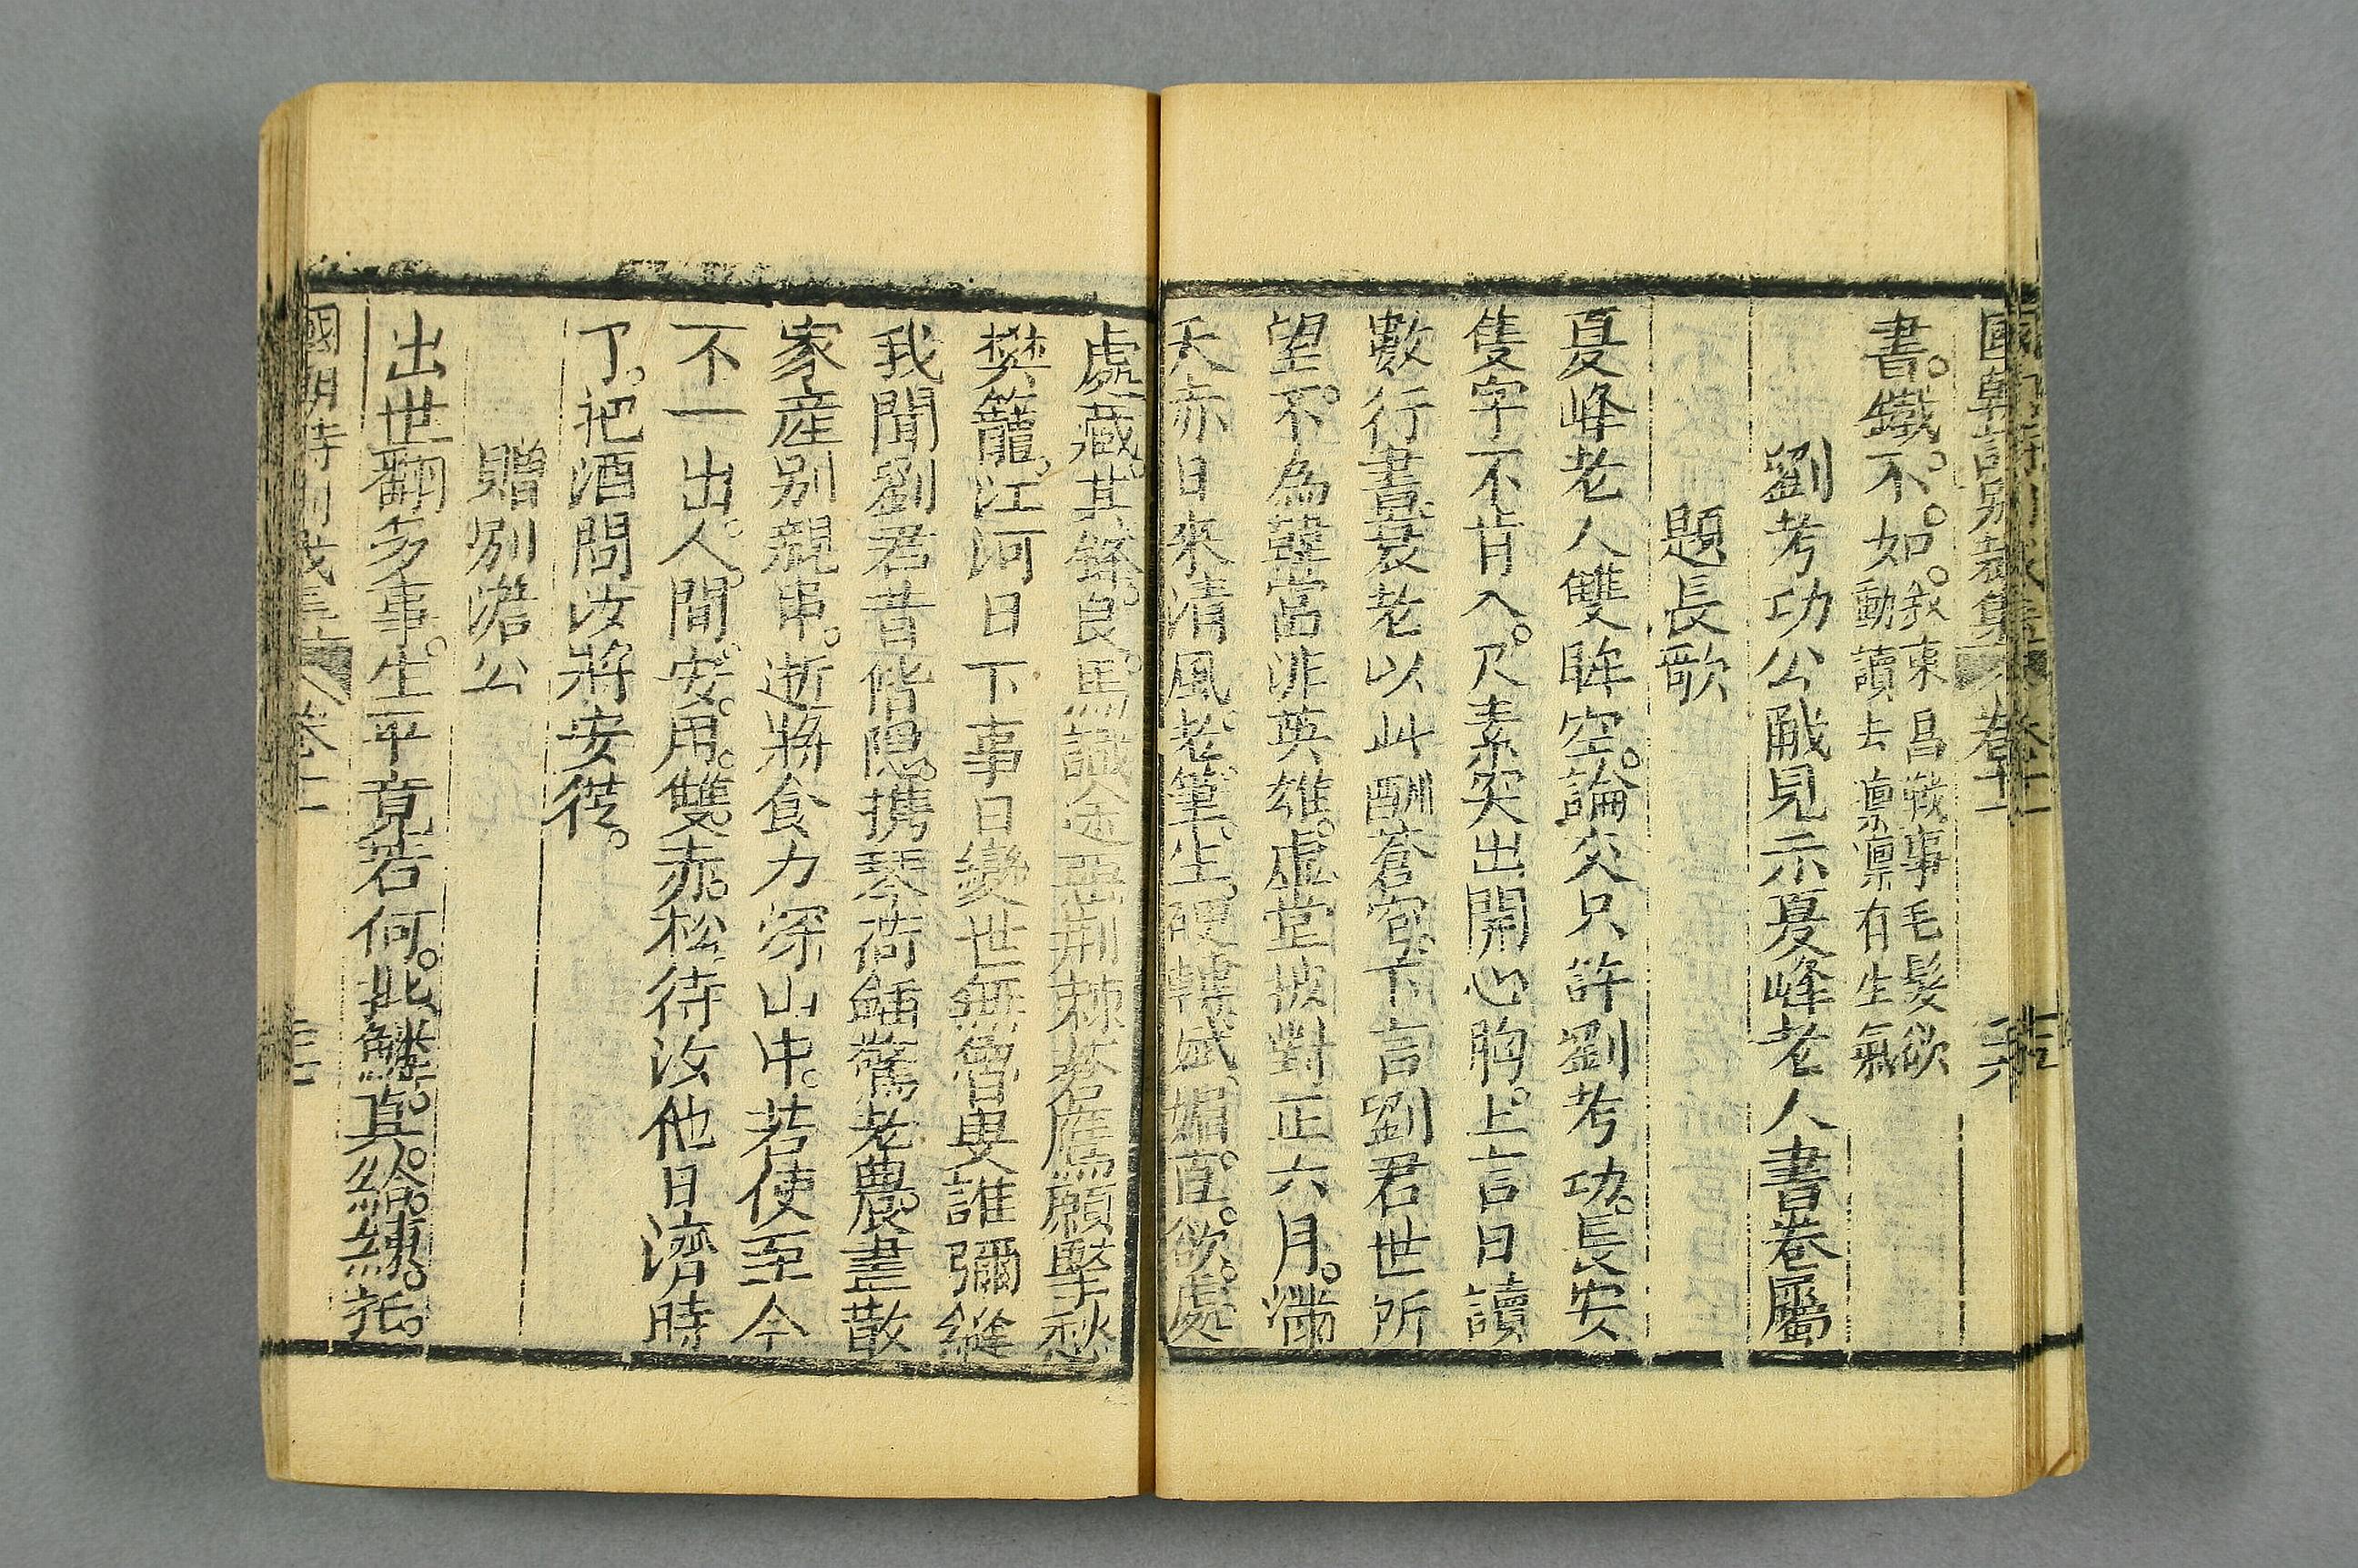 國朝詩別裁集 卷十一
書鐵不如 敘東昌戰事毛髮欲動讀去凛凛有生氣
劉考功公㦷見示夏峰老人書卷屬
題長歌
夏峰老人雙眸空論交只許劉考功長安
隻字不肯入尺素突出開心胸上言日讀
數行書衰老以此酬蒼穹下言劉君世所
望不為韓富非英雄虛堂披對正六月滿
天赤日來清風老筆生硬轉嫵媚直欲處
處藏其鋒良馬識途畏荊棘蒼鷹顧擊愁
樊籠江河日下事日變世無魯叟誰彌縫
我聞劉君昔偕隱携琴荷鍤驚老農盡散
家産別親串逝將食力深山中若使至今
不一出人間安用雙赤松待汝他日濟時
了把酒問汝將安從
贈別澹公
出世翻多事生平竟若何此鱗真線練
國朝詩別裁集 卷十一